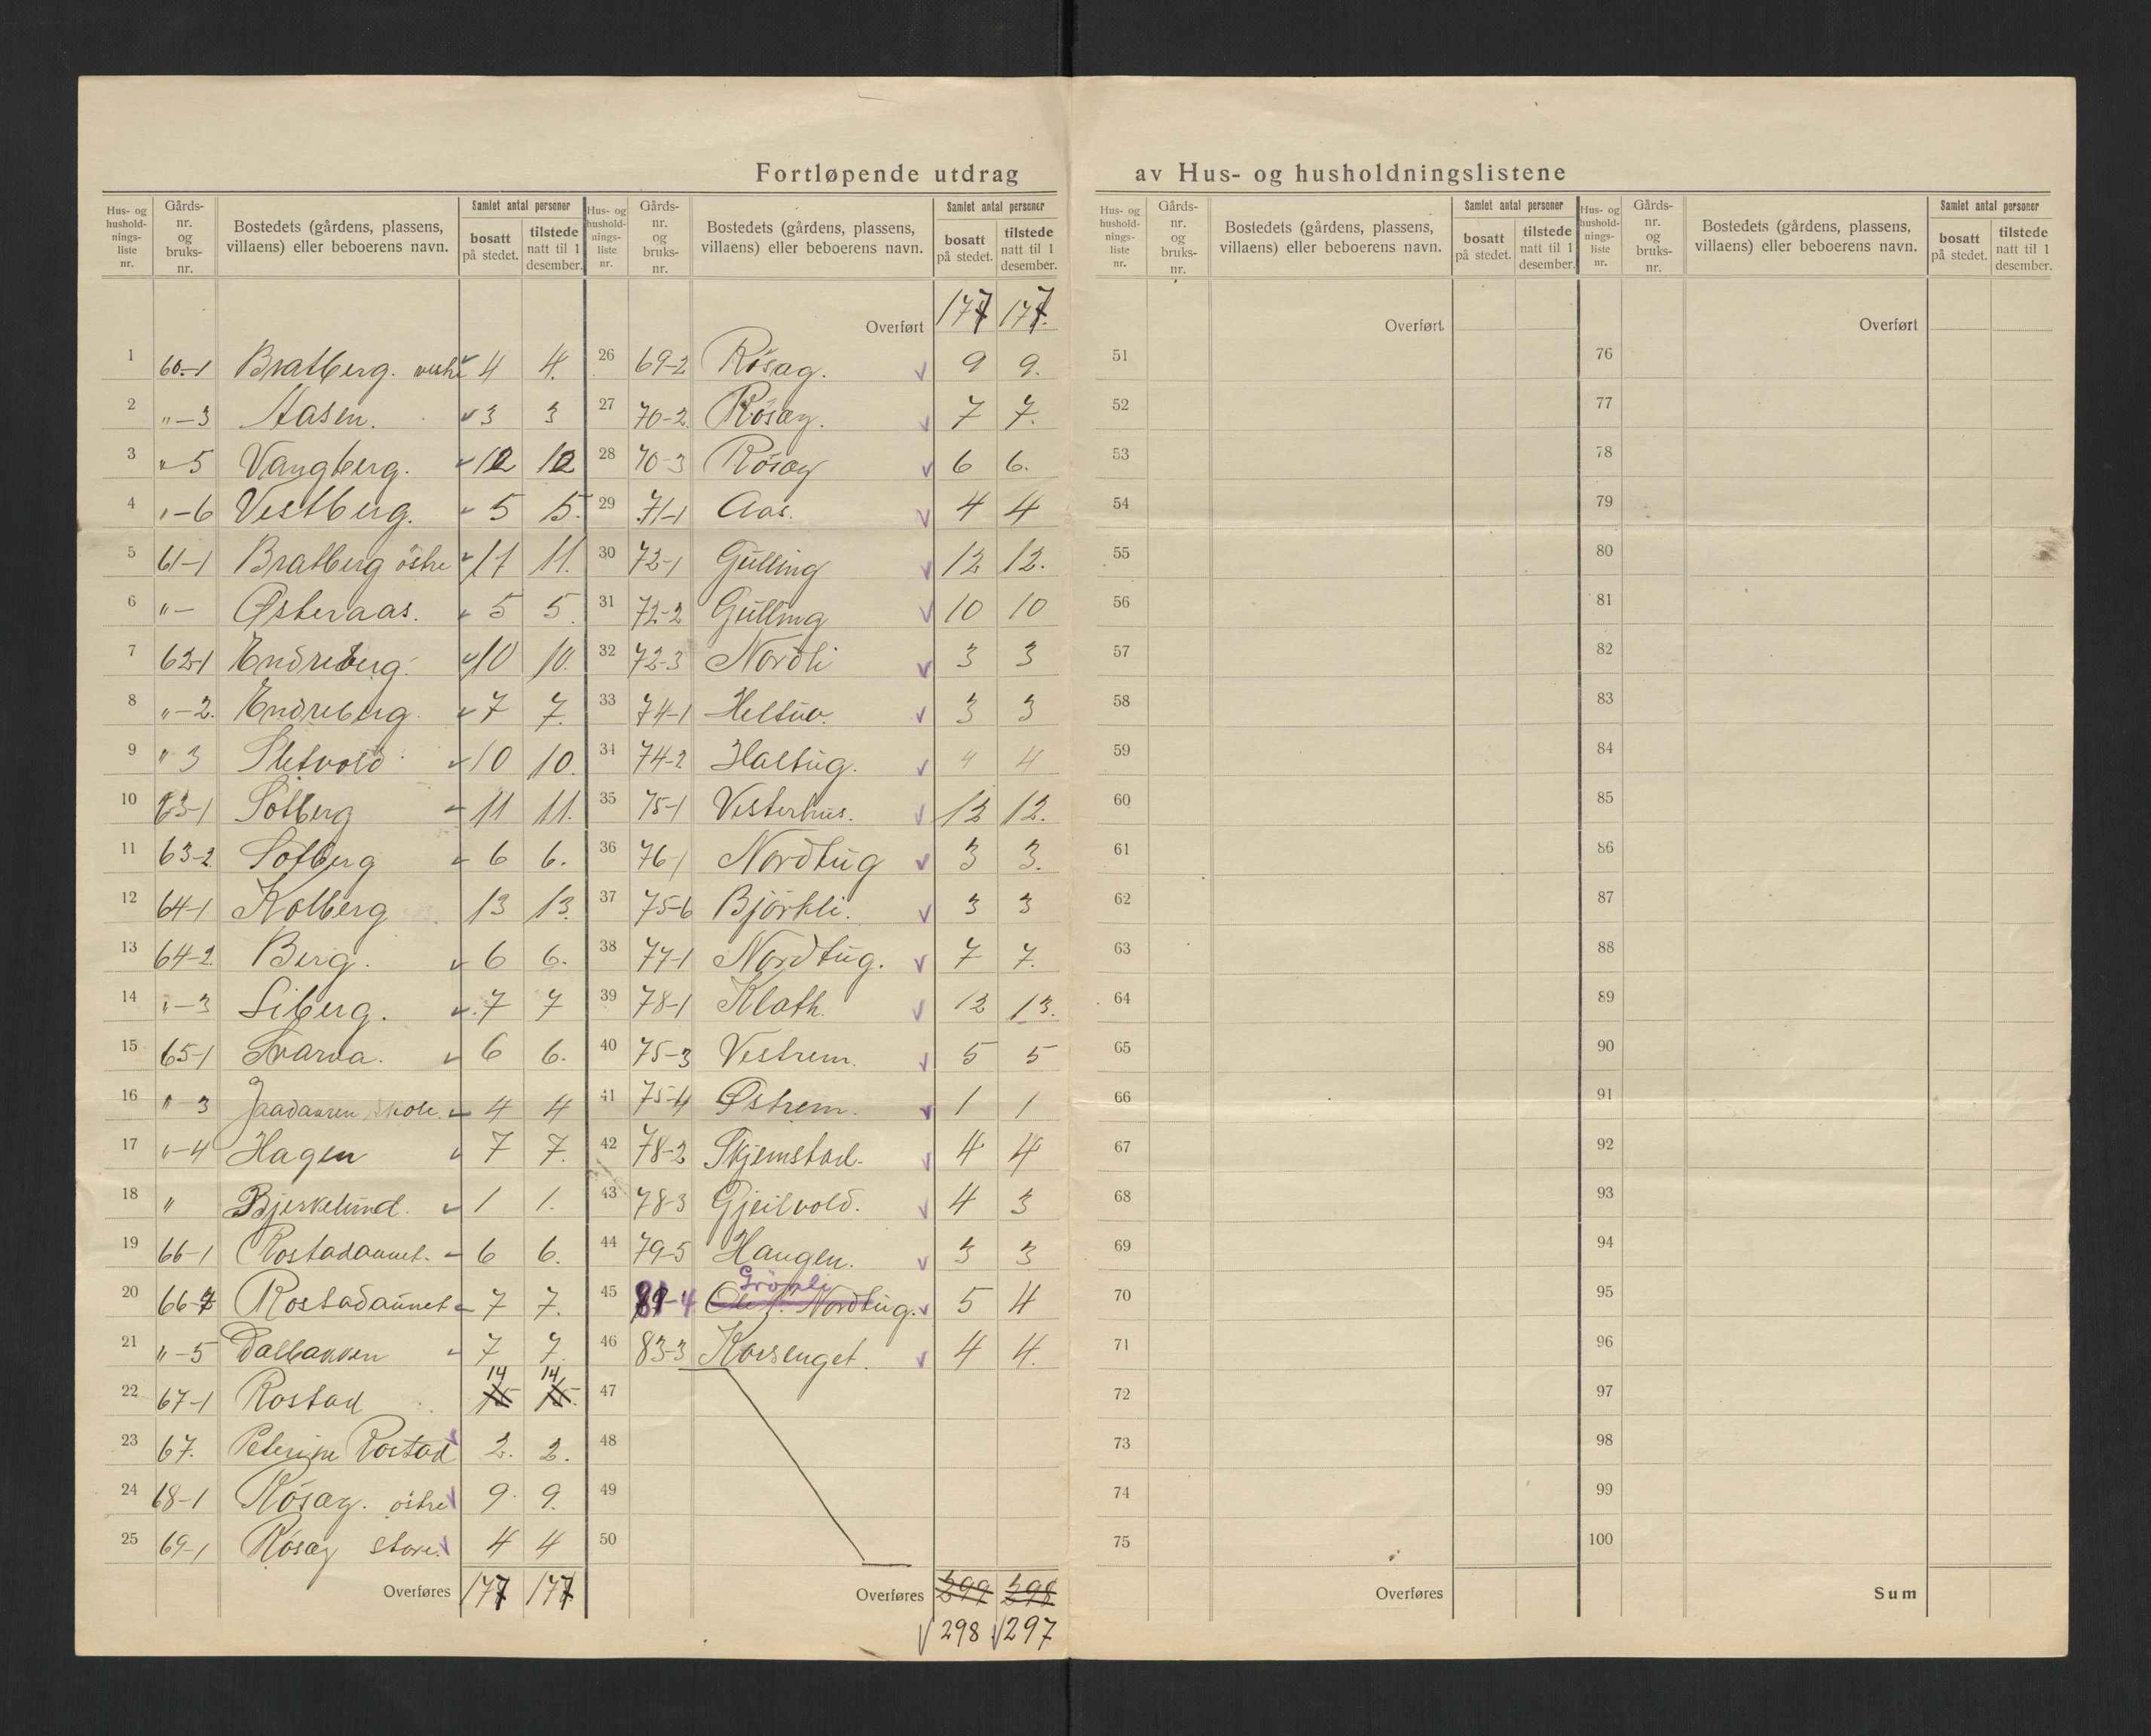 Fortløpende utdrag av Hus- og husholdningslistene
Hus- og hushold-nings-liste nr. Gårds-nr. og bruks-nr. Bostedets (gårdens, plassens, villaens) eller beboerens navn. Samlet antal personer bosatt på stedet. tilstede natt til 1 desember.
1 60-1 Bratberg. vestre 4 4.
2 "-3 Aasen. 3 3
3 "-5 Vangberg. 12 12
4 "-6 Vestberg. 5 5.
5 61-1 Bratberg östre 11 11.
6 "- Østeraas. 5 5.
7 62-1 Endreberg. 10 10.
8 "-2. Endreberg. 7 7.
9 " 3 Sletvold 10 10.
10 63-1 Solberg 11 11.
11 63-2 Solberg 6 6.
12 64-1 Kolberg 13 13.
13 64-2 Berg. 6 6.
14 "-3 Liberg. 7 7
15 65-1 Svarva. 6 6.
16 "-3 Jaadaaren skole. 4 4
17 "-4 Hagen 7 7.
18 " Bjerkelund. 1 1.
19 66-1 Rostadaunet. 6 6.
20 66-7 Rostadaunet 7 7.
21 "-5 Dalbakken 7 7.
22 67-1 Rostad 14 14
23 67. Rostad 2. 2.
24 68-1 Rösæg. östre 9. 9.
25 69-1 Rösæg store. 4 4
Overføres 177 177
Hus- og hushold-nings-liste nr. Gårds-nr. og bruks-nr. Bostedets (gårdens, plassens, villaens) eller beboerens navn. Samlet antal personer bosatt på stedet. tilstede natt til 1 desember.
Overført 177 177.
26 69-2 Rösæg. 9 9.
27 70-2 Rösæg. 7 7.
28 70-3 Rösæg 6 6.
29 71-1 Aas. 4 4
30 72-1 Gulling 12 12.
31 72-2 Gulling 10 10
32 72-3 Nordli 3 3
33 74-1 3 3
34 74-2 Haltug. 4 4
35 75-1 Vesterhus. 12 12.
36 76-1 Nordtug 3 3.
37 75-6 Björkli. 3 3
38 77-1 Nordtug. 7 7.
39 78-1 Klath. 13 13.
40 75-3 Vestrem. 5 5
41 75-4 Østrem. 1 1
42 78-2 Skjemstad. 4 4
43 78-3 Gjeilvold. 4 3
44 79-5 Haugen. 3 3
Grönli
45 81-4 Nordtug. 5 4
46 83-3 Korsenget. 4 4.
47
48
49
50
Overføres 299 298
298 297
Hus- og hushold-nings-liste nr. Gårds-nr. og bruks-nr. Bostedets (gårdens, plassens, villaens) eller beboerens navn. Samlet antal personer bosatt på stedet. tilstede natt til 1 desember.
Overført
51
52
53
54
55
56
57
58
59
60
61
62
63
64
65
66
67
68
69
70
71
72
73
74
75
Overføres
Hus- og hushold-nings-liste nr. Gårds-nr. og bruks-nr. Bostedets (gårdens, plassens, villaens) eller beboerens navn. Samlet antal personer bosatt på stedet. tilstede natt til 1 desember.
Overført
76
77
78
79
80
81
82
83
84
85
86
87
88
89
90
91
92
93
94
95
96
97
98
99
100
Sum